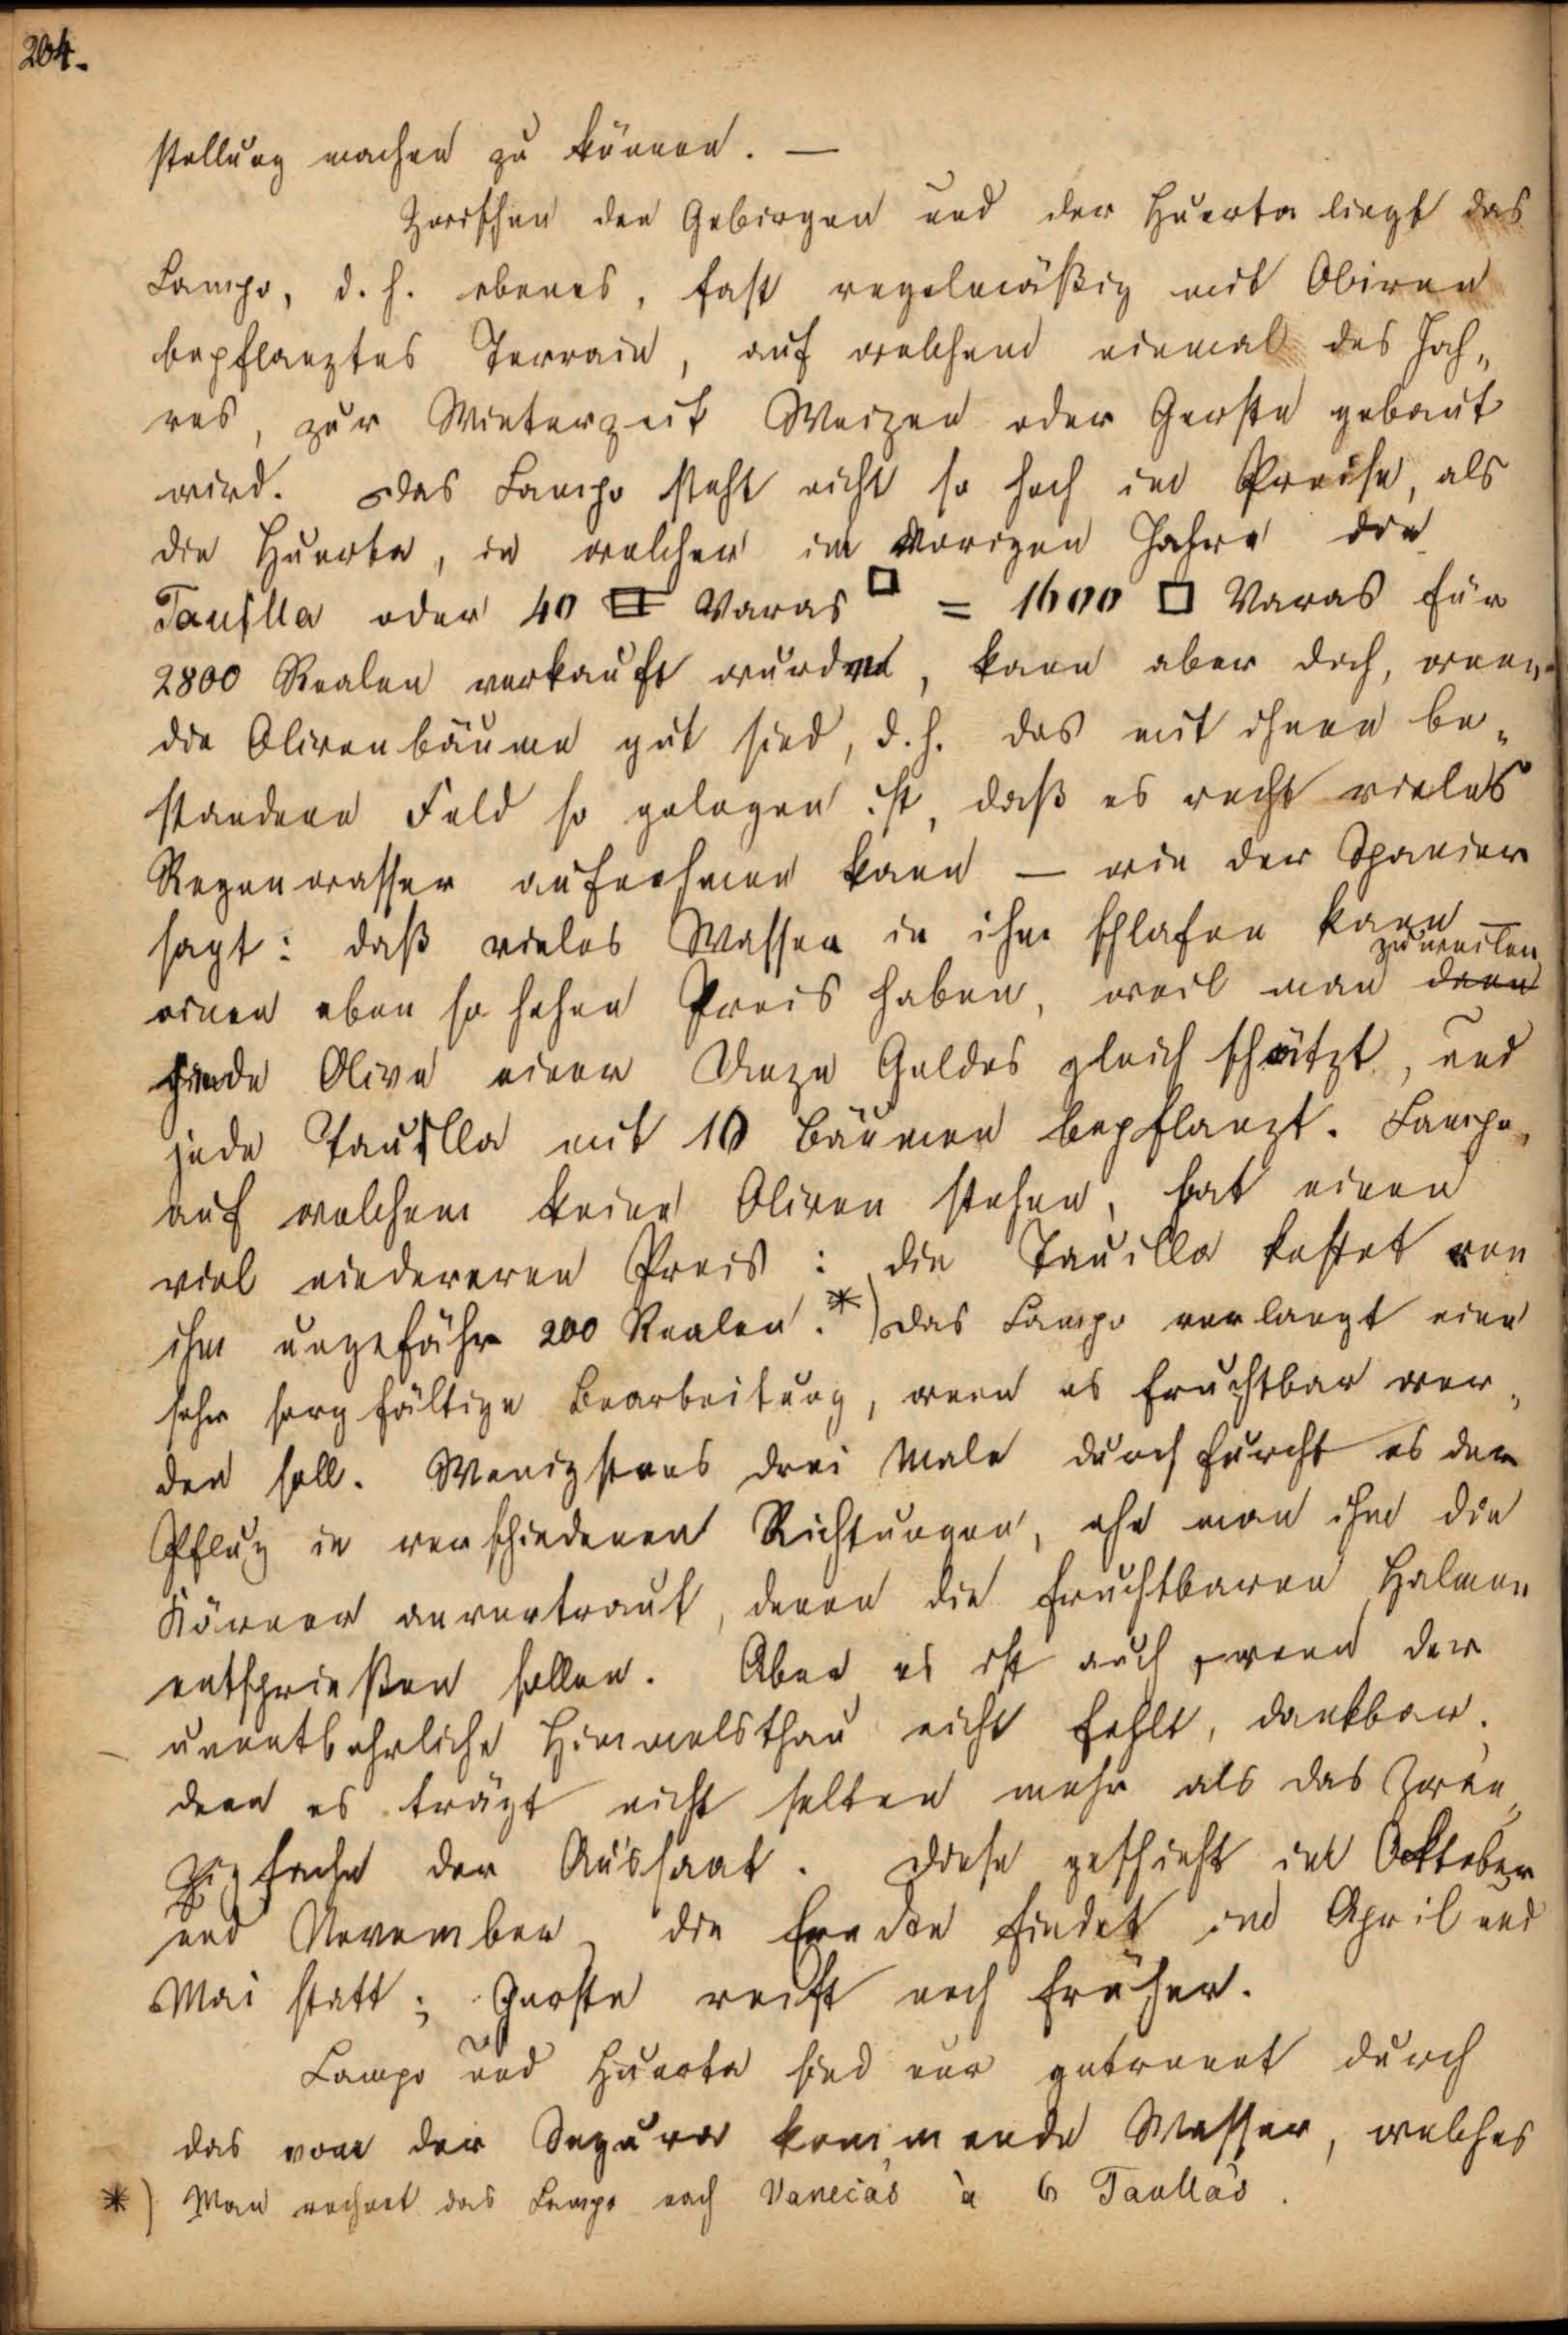 204.
stellung machen zu können. —
Zwischen den Gebirgen und der Huerta liegt das
Campo, d. h. ebenes, fast regelmäßig mit Oliven
bepflanztes Terrain, auf welchem einmal des Jah„
res, zur Winterzeit Weizen oder Gerste gebaut
wird. Das Campo steht nicht so hoch im Preise, als
die Huerta, in welcher im vorigen Jahre die
Taúlla oder 40 Varas □ = 1600 □ Varas für
2800 Realen verkauft wurden, kann aber doch, wenn
die Olivenbäume gut sind, d. h. das mit ihnen be„
standene Feld so gelegen ist, daß es recht vieles
Regenwasser aufnehmen kann — wie der Spanier
sagt: daß vieles Wasser in ihm schlafen kann —
zuweilen
einen eben so hohen Preis haben, weil man denn
jede Olive einer Unze Goldes gleich schätzt, und
jede Taúlla mit 10 Bäumen bepflanzt. Campo,
auf welchem keine Oliven stehen, hat einen
viel niedereren Preis: die Tauilla kostet von
ihm ungefähr 200 Realen. *) Das Campo verlangt eine
sehr sorgfältige Bearbeitung, wenn es fruchtbar wer„
den soll. Wenigstens drei Male durchfurcht es der
Pflug in verschiedenen Richtungen, ehe man ihm die
Körner anvertraut, denen die fruchtbaren Halmen
entsprießen sollen. Aber es ist auch, wenn der
unentbehrliche Himmelsthau nicht fehlt, dankbar;
denn es trägt nicht selten mehr als das Zwan„
zigfache der Aussaat. Diese geschieht im Ocktober
und November, die Erndte findet im April und
Mai statt; Gerste reift noch früher.
Campo und Huerta sind nur getrennt durch
das von der Segura kommende Wasser, welches
*) Man rechnet das Campo nach Vanecás à 6 Taullás.